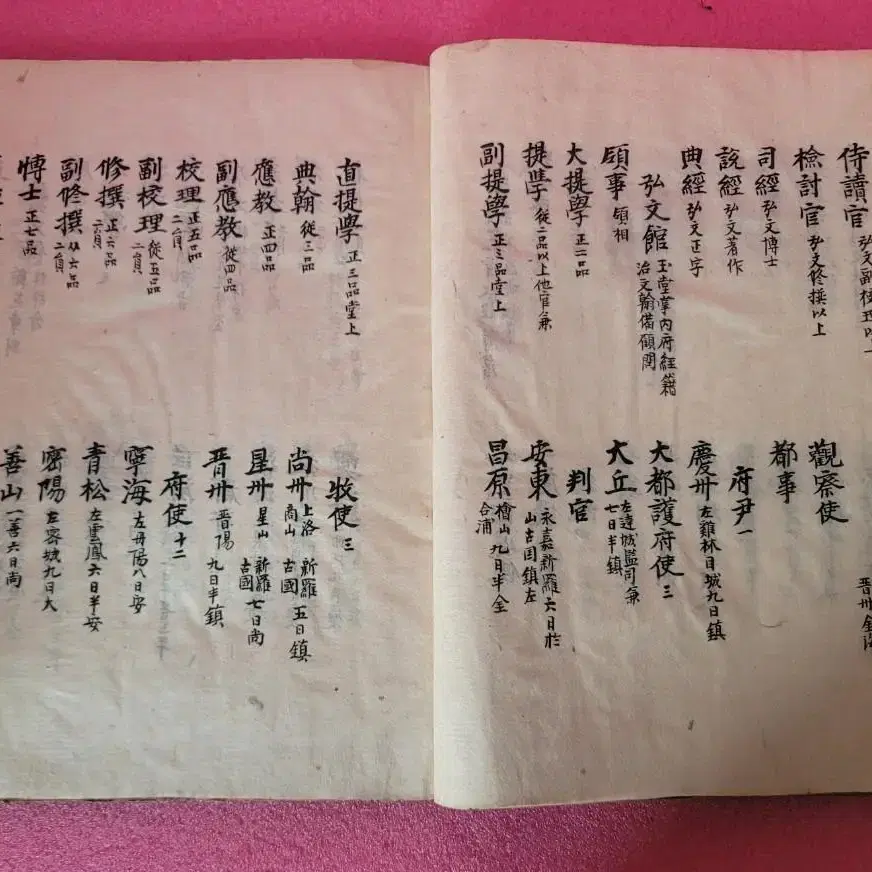 侍讀官 弘文副校理以上
檢討官 弘文修撰以上
司經 弘文博士
說經 弘文著作
典經 弘文正字
領事 領相
弘文館 玉堂掌內府經籍
治文翰備顧問
大提學 正二品
提學 從二品以上他官兼
副提學 正三品堂上
晋州 金海
觀察使
都事
府尹 一
慶州 左雞林月城九日鎮
大都護府使 三
大丘 左達城監司兼
七日半鎮
判官
安東 永嘉新羅六日半
山古国鎮左
昌原 檜山九日半金
合浦
直提學 正三品堂上
典翰 從三品
應教 正四品
副應教 從四品
校理 正五品
二員
副校理 從五品
二員
修撰 正六品
二員
副修撰 從六品
二員
博士 正七品
牧使 三
尚州 上洛 新羅 五日鎮
商山 古國
星州 星山 新羅 七日尚
古國
晋州 晋陽 九日半鎮
府使 十二
寧海 左丹陽八日安
青松 左雲鳳六日半安
密陽 左密城九日大
善山 一善六日尚